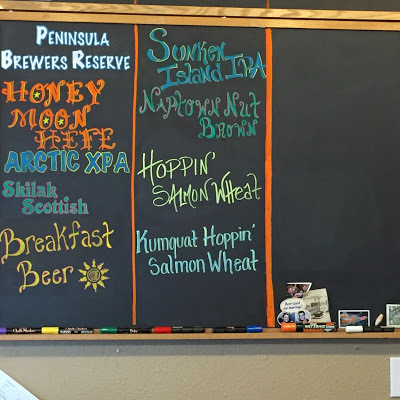 Peninsula
Brewers Reserve
Honey
Moon
Hefe
Arctic XPA
Skilak
Scottish
Breakfast
Beer
Sunken
Island IPA
Naptown Nut
Brown
Hoppin'
Salmon Wheat
Kumquat Hoppin'
Salmon Wheat